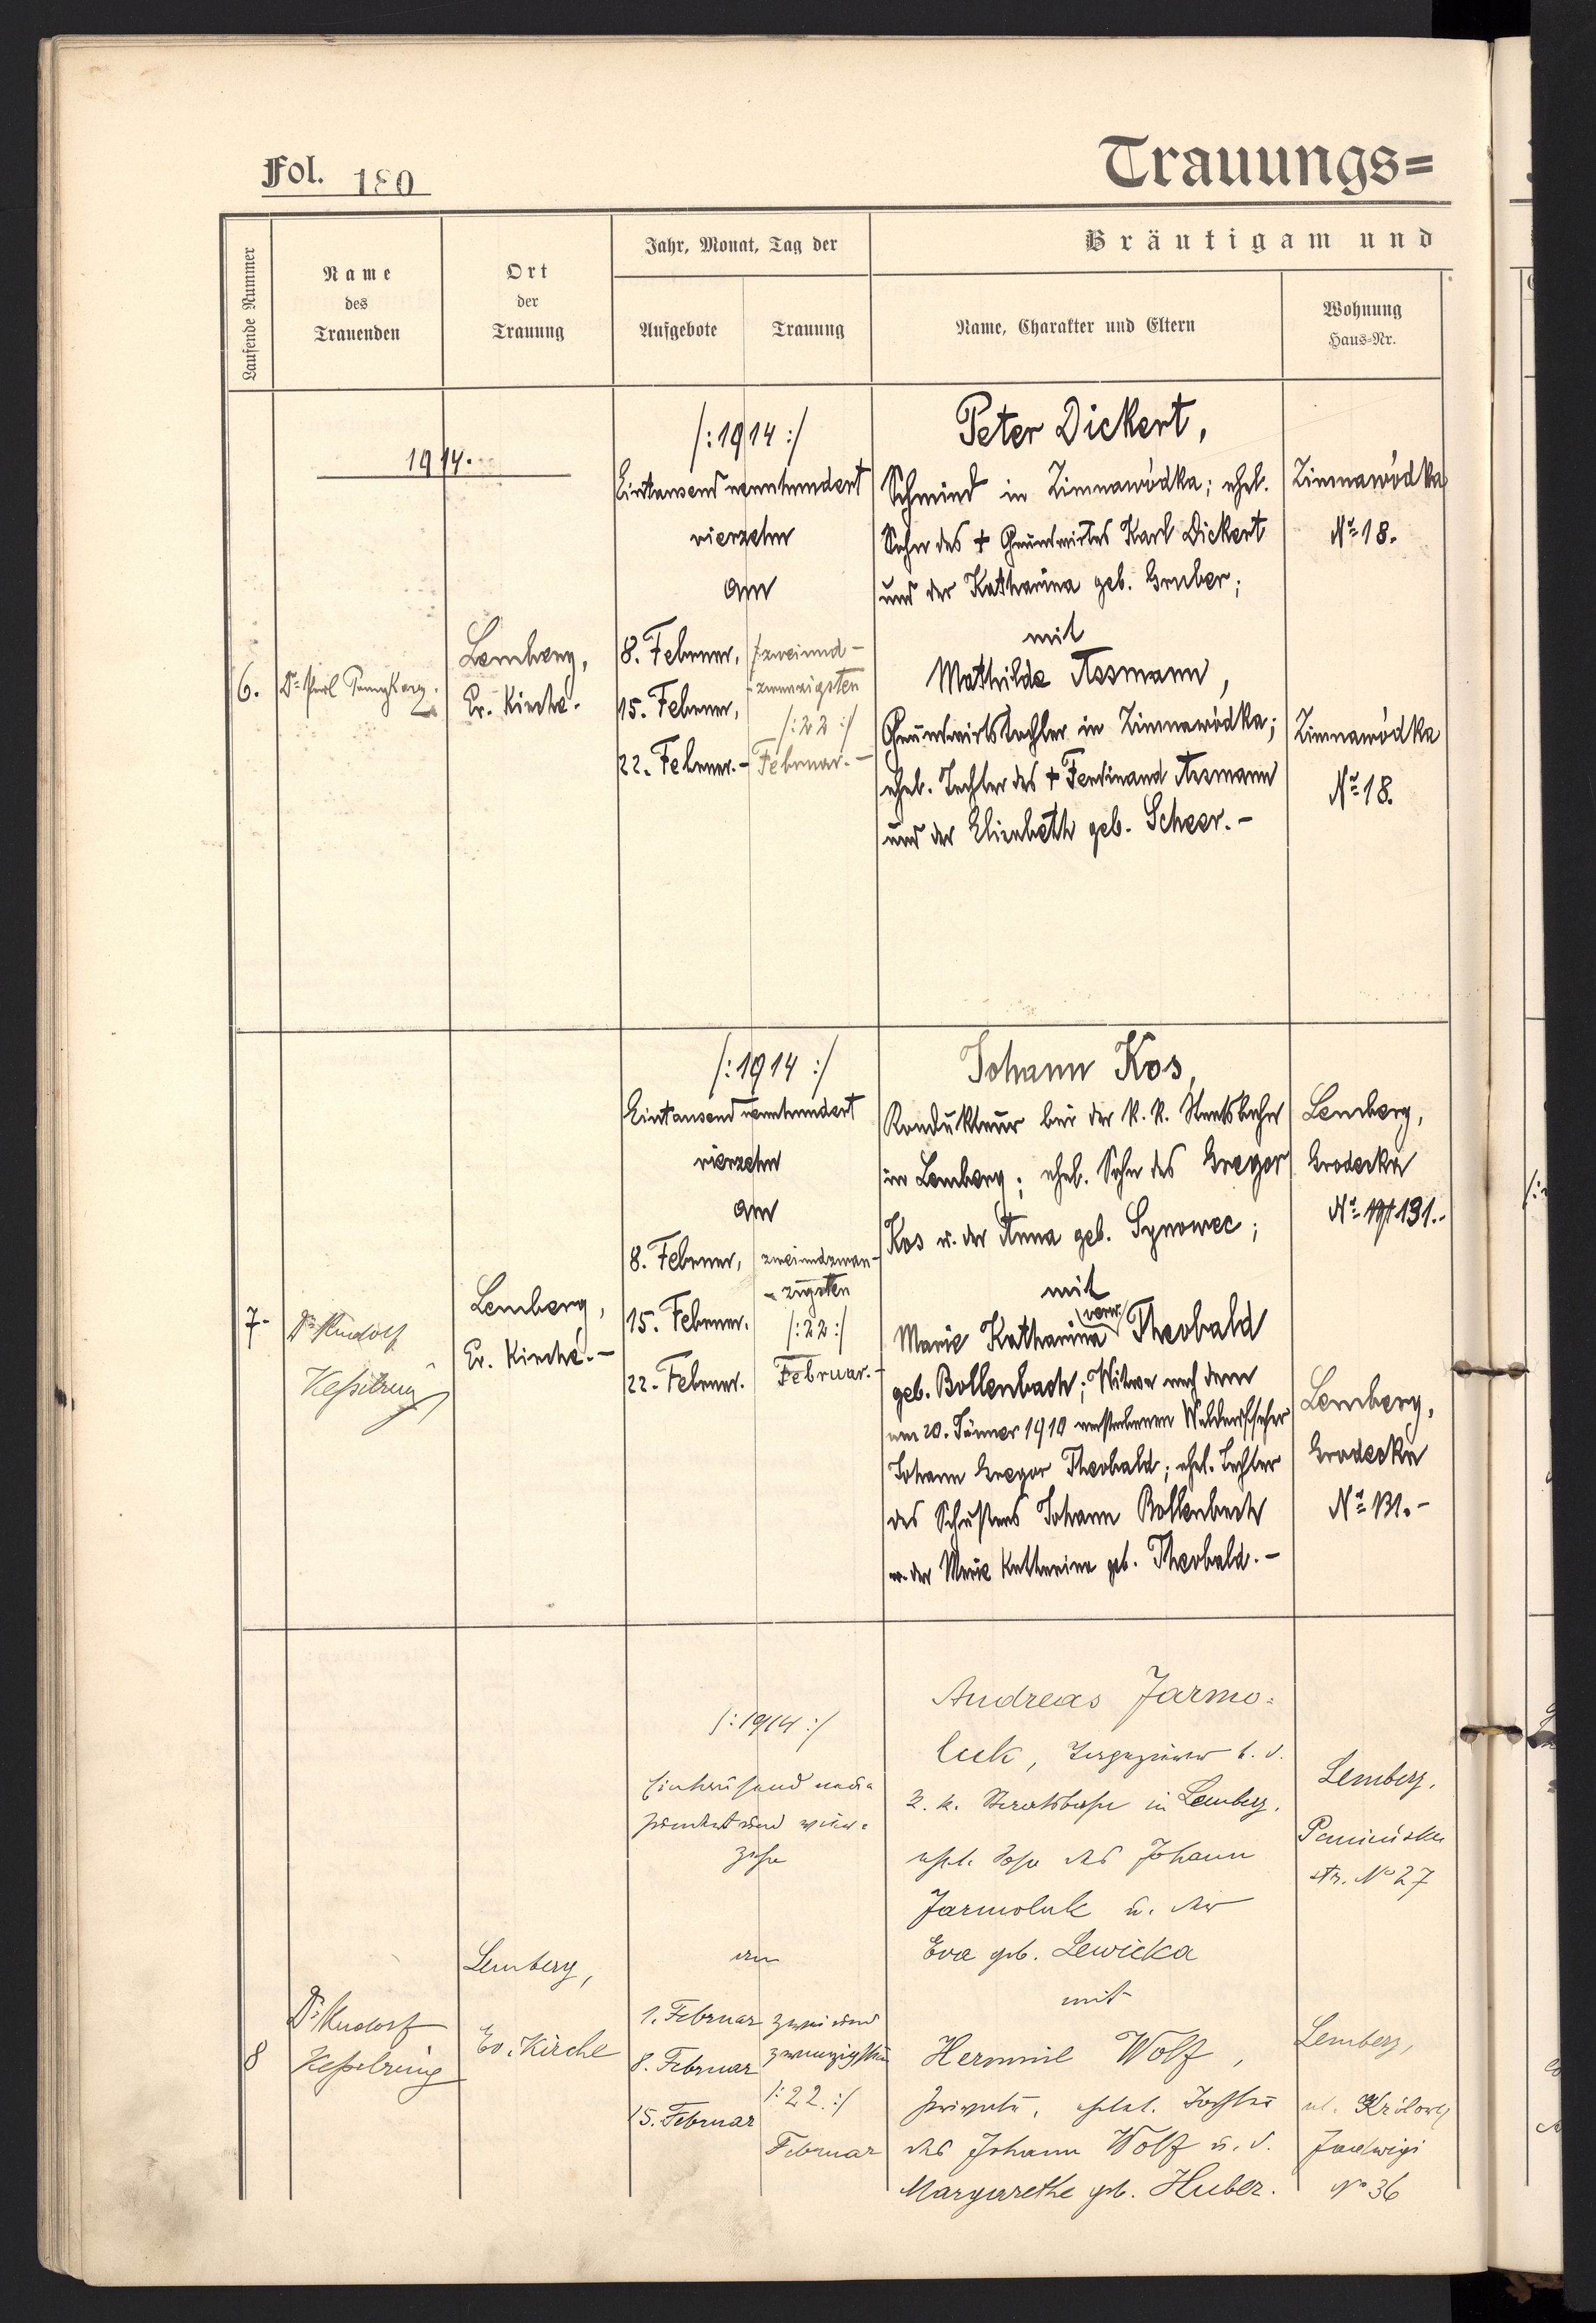 Fol. 180
Trauungs=
Laufende Nummer
Name
des
Trauenden
Ort
der
Trauung
Jahr, Monat, Tag der
Aufgebote
Trauung
Bräutigam und
Name, Charakter und Eltern
Wohnung
Haus=Nr.
1914.
6.
Lemberg,
Ev. Kirche.
/:1914:/
Eintausend neunhundert
vierzehn
am
8. Februar,
15. Februar,
22. Februar.-
zweiund-
-zwanzigsten
/:22:/
Februar.-
Peter Dickert,
Schmied in Zimnawódka; ehel.
Sohn des + Grundwirtes Karl Dickert
und der Katharina geb. Gruber;
mit
Mathilde Assmann,
Grundwirtstochter in Zimnawódka;
ehel. Tochter des + Ferdinand Assmann
und der Elisabeth geb. Scheer.-
Zimnawódka
No 18.
Zimnawódka
No 18.
7.
Dr. Rudolf
Kesselring
Lemberg,
Ev. Kirche.-
/:1914:/
Eintausend neunhundert
vierzehn
am
8. Februar,
15. Februar.
22. Februar.
zweiundzwan-
-zigsten
/:22:/
Februar.-
Johann Kos,
Kondukteur bei der k. k. Staatsbahn
in Lemberg; ehel. Sohn des Gregor
Kos u. der Anna geb. Synowec;
mit
Marie Katharina verw. Theobald
geb. Bollenbach; Witwe nach dem
am 20. Jänner 1910 verstorbenen Waldaufseher
Johann Gregor Theobald; ehel. Tochter
des Schusters Johann Bollenbach
u. der Marie Katharina geb. Theobald.-
Lemberg,
Grodecka
No 131.-
Lemberg,
Grodecka
No 131.-
8
Dr. Rudolf
Kesselring
Lemberg,
Ev. Kirche
/:1914:/
Eintausend neun-
hundert und vier-
zehn
am
1. Februar
8. Februar
15. Februar
zwei und
zwanzigsten
/:22.:/
Februar
Andreas Jarmo=
luk, b. d.
k. k. Staatsbahn in Lemberg,
ehel. Sohn des Johann
Jarmoluk u. der
Eva geb. Lewicka
mit
Hermine Wolf,
Private, ehel. Tochter
des Johann Wolf u. d.
Margarethe geb. Huber.
Lemberg,
str. No 27
Lemberg,
ul. Królowej
Jadwigi
No 36